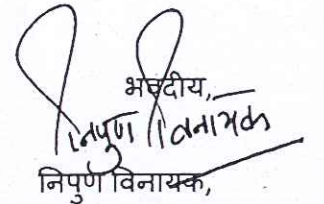 भवदीय,
निपुण विनायक
निपुण विनायक,